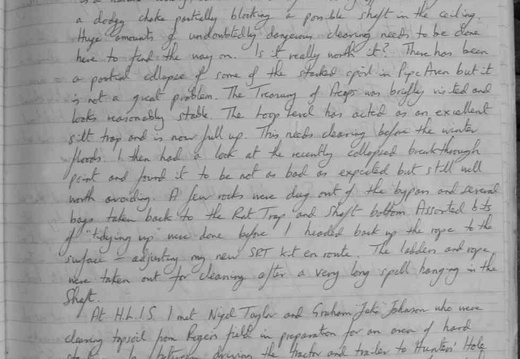 a dodgy choke partially blocking a possible shaft in the ceiling.
Huge amounts of undoubtedly dangerous clearing needs to be done
here to find the way on. Is it really worth it? There has been
a partial collapse of some of the stacked spoil in Pipe Aven but it
is not a great problem. The Treasury of Aeops was briefly visited and
looks reasonably stable. The Loop Level has acted as an excellent
silt trap and is now full up. This needs clearing before the winter
floods. I then had a look at the recently collapsed breakthrough
point and found it to be not as bad as expected but still well
worth avoiding. A few rocks were dug out of the bypass and several
bags taken back to the Rat Trap and Shaft bottom. Assorted bits
of "tidying up" were done before I headed back up the rope to the
surface - adjusting my new SRT kit en route. The ladders and rope
were taken out for cleaning after a very long spell hanging in the
Shaft.
At H.L.I.S I met Nigel Taylor and Graham Johnson who were
clearing topsoil from field in preparation for an area of hard
driving the tractor and trailer to Hunters' Hole